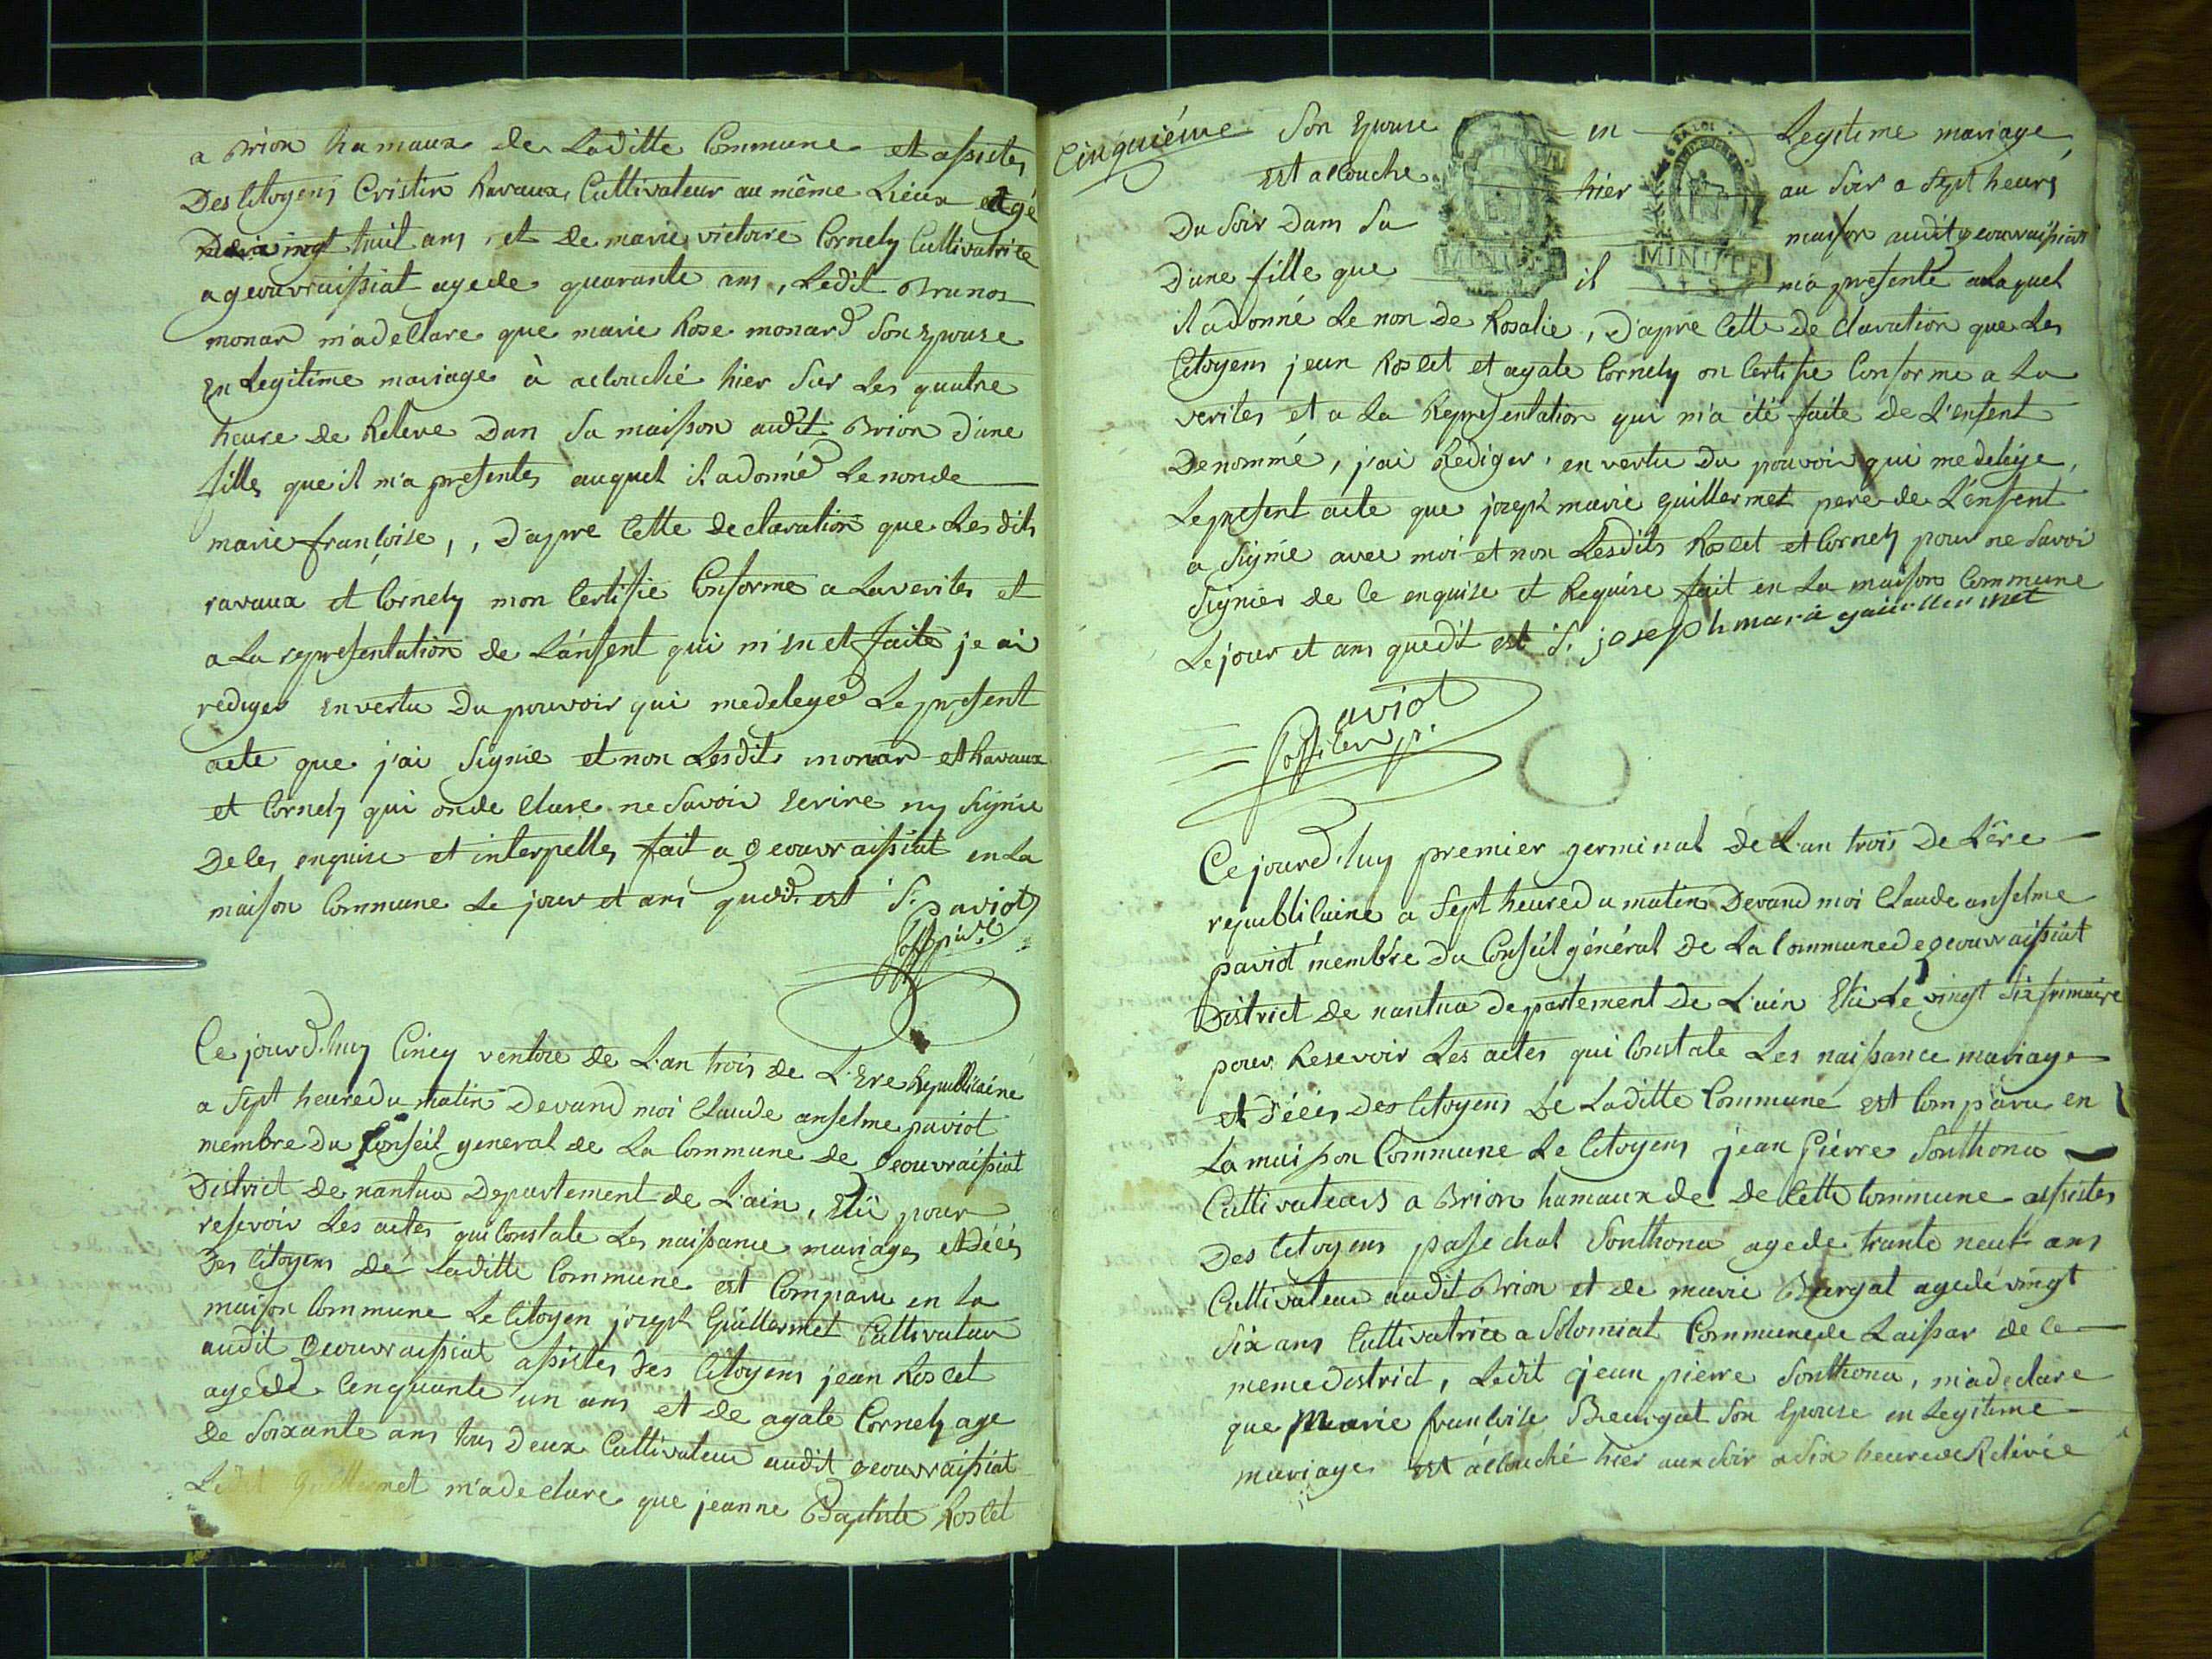 a Brion hamaux de Laditte Commune et assistes
Des Citoyens Cristin Ravaux Cultivateur au même Lieux agé
De vingt huit ans, et de marie victoire Cornely Cultivatrice
a geouvraissiat agede quarante ans, Ledit Brunos
monar m'adecllare que marie Rose monard Son Epouse
En Legitime mariage à aclouché hier Sur Les quatre
heure de Releve Dan Sa maisson audit Brion d'une
fille, que il m'a presentes auquel il adonné Le nonde
marie françoise,, D'apre Cette declaration que Les dits
ravaux et Cornely mon Certifie Conforme a Laverites et
a La representation de L'anfent qui m'en et faite je ai
rediger En vertu Du pouvoir qui medelege Le present
acte que j'ai Signie et non Lesdits monar et Ravaux
et Cornely qui onde Clare ne Savoir Ecrire ny Signie
De les enquise et interpelles fait a geouvraissiat en La
maison Commune Le jour et ans quedit est S. paviot
off. pu.
Ce jourd'huy Cincq ventose de L'an trois de L'Ere Republicaine
a Sept heuredu matin Devand moi Claude anselme paviot
membre du Conseil general de La Commune de geouvraissiat
District de nantua Departement de L'ain, Elü pour
resevoir Les actes qui Constate Les naissance mariages et Décés
Des Citoyens de Laditte Commune est Comparu en La
maison Commune Le Citoyen joseph Guillermet Cultivateur
audit geouvraissiat assistes Des Citoyens jean Roslet
agede Cenquante un ans et de agate Cornely age
de Soixante ans tous Deux Cultivateur audit geouvraissiat
Ledit Guillermet m'ade clare que jeanne Baptiste Roslet
Cinquiéme Son Epouse en Legitime mariage,
est aclouche hier au Soir a Sept heures
Du Soir Dans Sa maison audit geouvraissiat
D'une fille que il m'a presente alaquel
MINUTE MINUTE
il adonné Le non de Rosalie, D'apre Cette De claration que Les
Citoyens jean Roslet et agate Cornely on Certifie Conforme a La
verites et a La Representation qui m'a été faite de L'enfent
Denommé, j'ai Rediger, en vertu Du pouvoir qui medelége,
Lepresent acte que joseph marie guillermet pere de L'enfent
a Signie avec moi et non Lesdits Roslet et Cornely pour ne Savoir
Signier de Ce enquise et Requise fait en La maison Commune
Le jour et ans quedit est S. joseph maria guillermet
Paviot
officier p.
Ce jourd'huy premier germinal de L'an trois De L'ére
republicaine a Sept heuredu matin Devand moi Claude anselme
paviot membre du Conseil général de La Commune de geouvraissiat
District de nantua departement de L'ain Elü Le vingt Six frimaire
pour Resevoir Les actes qui Constate Les naissance mariage
et Décés Des Citoyens De Laditte Commune est Comparu en
La maisson Commune Le Citoyens jean Pierre Sonthona
Cultivateurs a Brion hamaux de de Cette Commune assistes
Des Citoyens passe chal Sonthona agede trante neuf ans
Cultivateur audit Brion et de marie Burgat agede vingt
Six ans Cultivatrice a Solomiat Communede Laissar de Ce
meme District, Ledit jean pierre Sonthona, m'adeclare
que Marie francoise Beurgat Son Epouse en Legitime
mariage est aclouché hier aux Soir a Six heurede Relevée